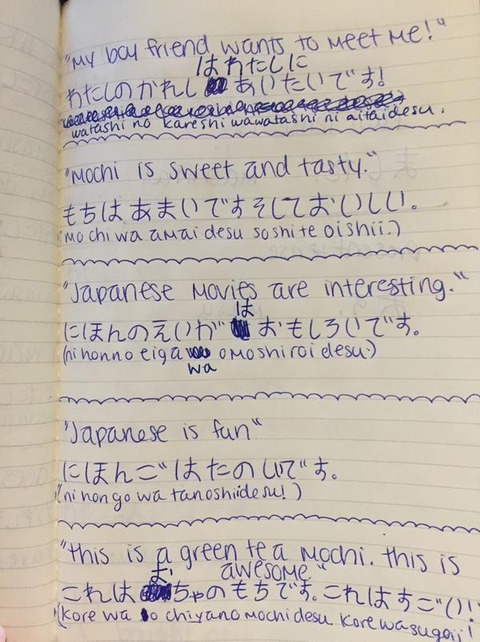 "My boy friend wants to meet me!"
はわたしに
わたしのかれし あいたいです!
watashi no kareshi wawatashi ni aitaidesu.
"Mochi is sweet and tasty."
もちはあまいですそしておいしい。
(mochi wa amai desu soshite oishii.)
"Japanese movies are interesting."
は
にほんのえいが おもしろいです。
(nihonno eiga omoshiroi desu.)
wa
"Japanese is fun"
にほんごはたのしいです。
(nihongo wa tanoshiidesu!)
"This is a green tea mochi. This is
awesome"
お
これは ちゃのもちです。これはすごい!
(kore wa o chiyano mochi desu. kore wa sugoii!